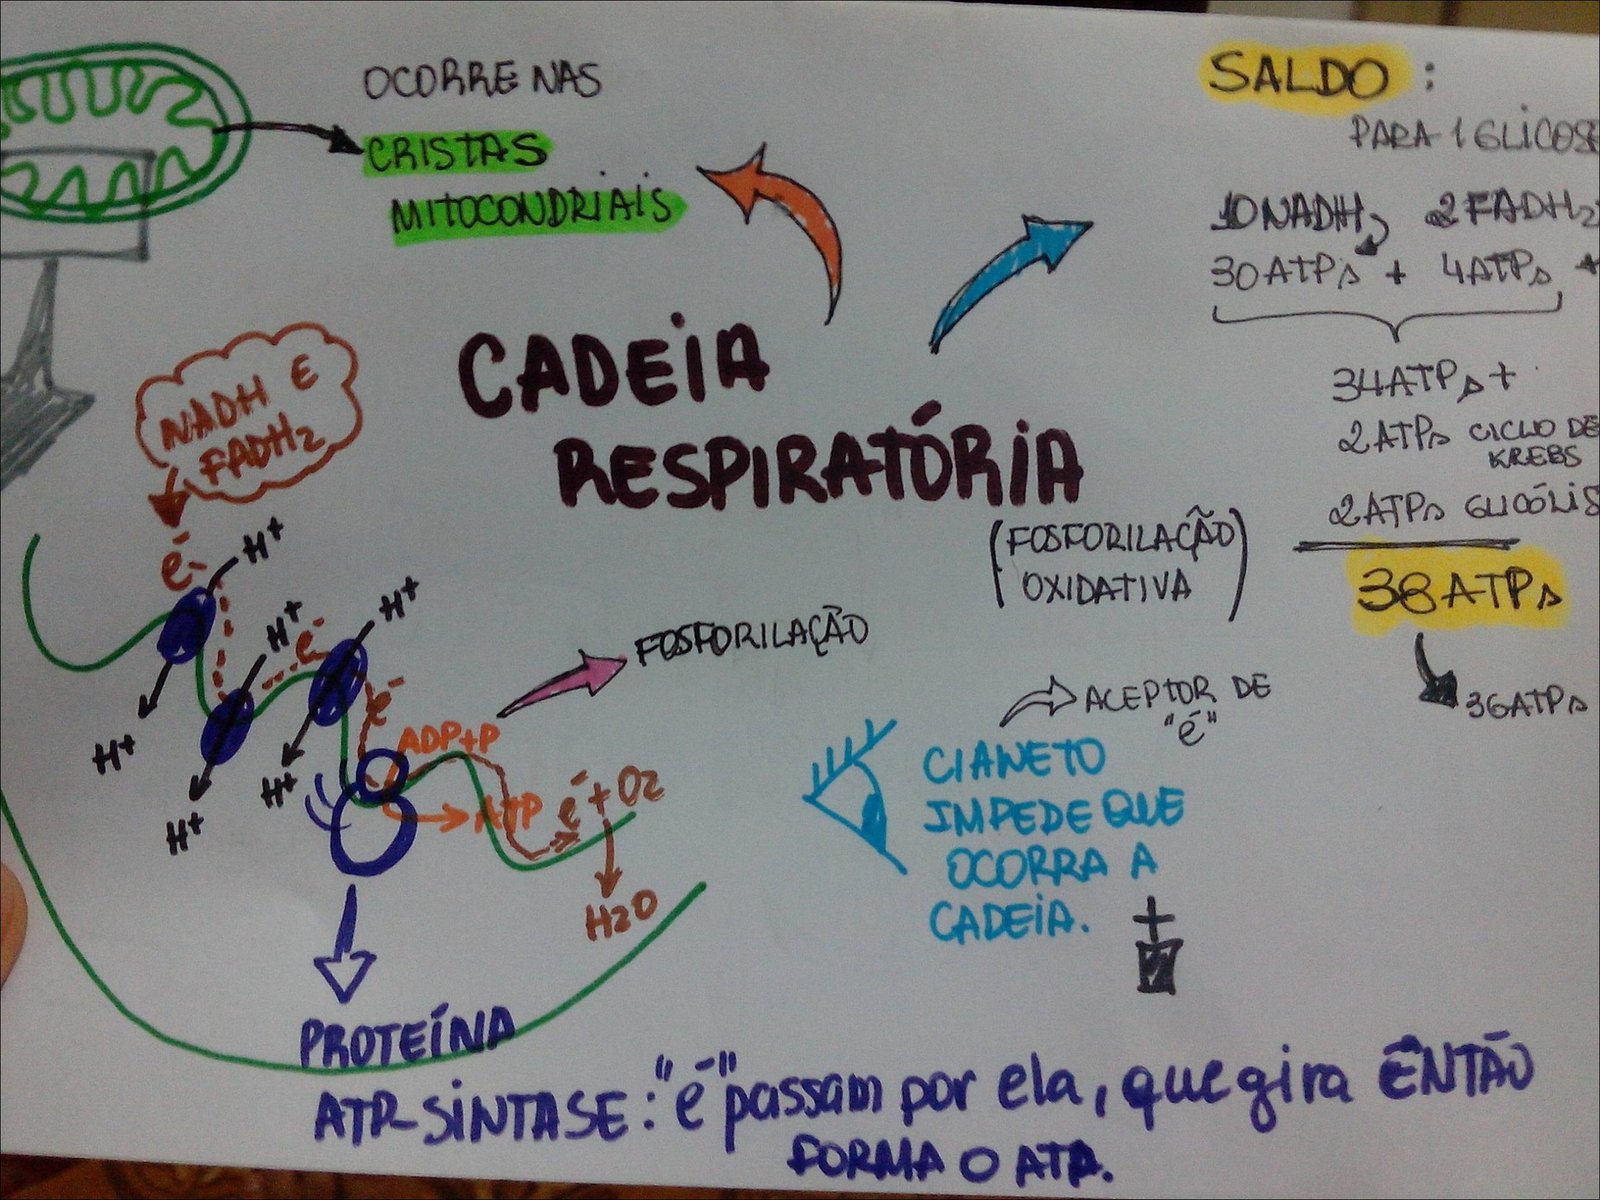 OCORRE NAS
CRISTAS
MITOCONDRIAIS
SALDO :
PARA 1 GLICOSE
10 NADH 2 FADH2
30 ATPs + 4 ATPs +
34 ATPs +
2 ATPs CICLO DE
KREBS
2 ATPs GLICÓLIS
38 ATPs
36 ATPs
CADEIA
RESPIRATÓRIA
(FOSFORILAÇÃO
OXIDATIVA)
NADH E
FADH2
e-
H+
H+
H+
e-
e-
H+
H+
H+
FOSFORILAÇÃO
ADP+P
ATP
e- + O2
H2O
ACEPTOR DE
"e-"
CIANETO
IMPEDE QUE
OCORRA A
CADEIA.
PROTEÍNA
ATP-SINTASE: "e-" passam por ela, que gira ENTÃO
FORMA O ATP.